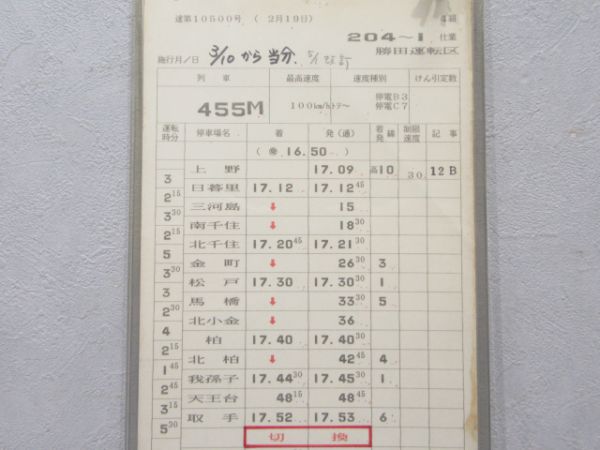 達第10500号 ( 2月19日)
4組
204～1 仕業
勝田運転区
施行月/日 3/10から当分.
列車 最高速度 速度種別 けん引定数
455M 100km/h 停電B3
停電C7
運転時分 停車場名 着 発(通) 着発線 制限速度 記事
16.50
上野 17.09 高10 30 12B
3
日暮里 17.12 17.12 45
2 15
三河島 ↓ 15
3 30
南千住 ↓ 18 30
2 15
北千住 17.20 45 17.21 30
5
金町 ↓ 26 30 3
3 30
松戸 17.30 17.30 30 1
3
馬橋 ↓ 33 30 5
2 30
北小金 ↓ 36
4
柏 17.40 17.40 30
2 15
北柏 ↓ 42 45 4
1 45
我孫子 17.44 30 17.45 30 1
2 45
天王台 48 15 48 45
3 15
取手 17.52 17.53 6
5 30
切換